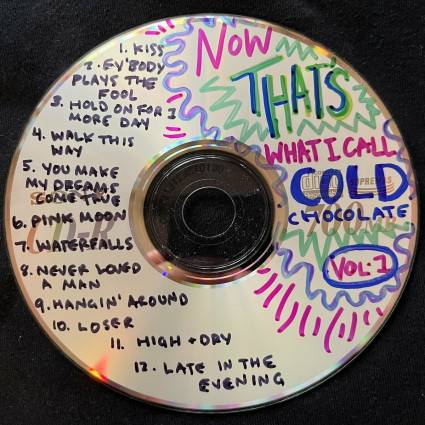 1. KISS
2. EV'BODY
PLAYS THE
FOOL
3. HOLD ON FOR 1
MORE DAY
4. WALK THIS
WAY
5. YOU MAKE
MY DREAMS
COME TRUE
6. PINK MOON
7. WATERFALLS
8. NEVER LOVED
A MAN
9. HANGIN' AROUND
10. LOSER
11. HIGH + DRY
12. LATE IN THE
EVENING
NOW
THAT'S
WHAT I CALL
COLD
CHOCOLATE
VOL. 1
CD-R
700